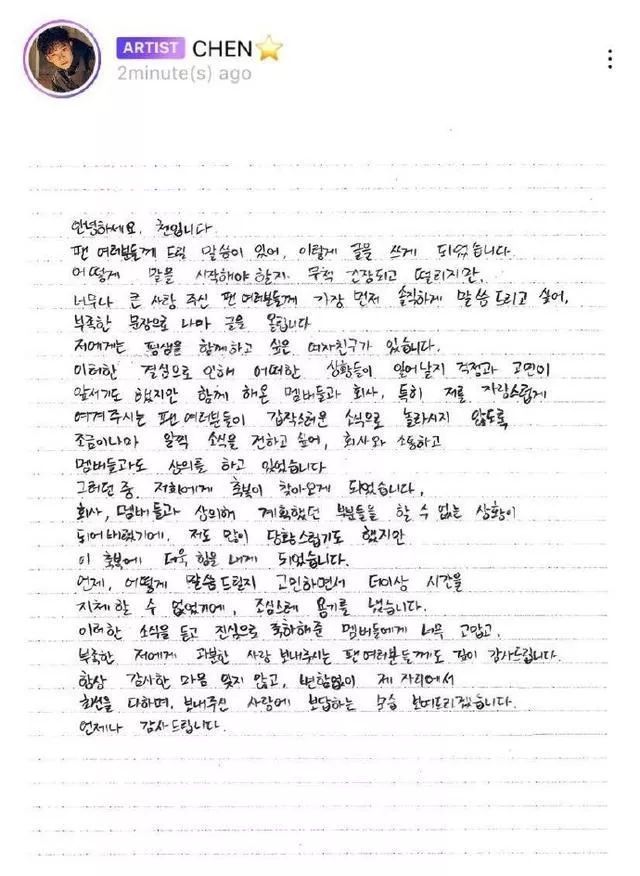 ARTIST CHEN⭐
2minute(s) ago
안녕하세요. 첸입니다
팬 여러분들께 드릴 말씀이 있어, 이렇게 글을 쓰게 되었습니다.
어떻게 말을 시작해야 할지 무척 긴장되고 떨리지만,
너무나 큰 사랑 주신 팬 여러분들께 가장 먼저 솔직하게 말씀 드리고 싶어,
부족한 문장으로 나마 글을 올립니다
저에게는 평생을 함께하고 싶은 여자친구가 있습니다.
이러한 결심으로 인해 어떠한 상황들이 일어날지 걱정과 고민이
앞서기도 했지만 함께 해온 멤버들과 회사, 특히 저를 자랑스럽게
여겨주시는 팬 여러분들이 갑작스러운 소식으로 놀라시지 않도록
조금이나마 일찍 소식을 전하고 싶어, 회사와 소통하고
멤버들과도 상의를 하고 있었습니다
그러던 중, 저희에게 축복이 찾아오게 되었습니다.
회사, 멤버들과 상의해 계획했던 부분들을 할 수 없는 상황이
되어버렸기에, 저도 많이 당황스럽기도 했지만
이 축복에 더욱 힘을 내게 되었습니다.
언제, 어떻게 말씀 드릴지 고민하면서 더이상 시간을
지체 할 수 없었기에, 조심스레 용기를 냈습니다.
이러한 소식을 듣고 진심으로 축하해준 멤버들에게 너무 고맙고,
부족한 저에게 과분한 사랑 보내주시는 팬 여러분들께도 깊이 감사드립니다.
항상 감사한 마음 잊지 않고, 변함없이 제 자리에서
최선을 다하며, 보내주신 사랑에 보답하는 모습 보여드리겠습니다.
언제나 감사드립니다.